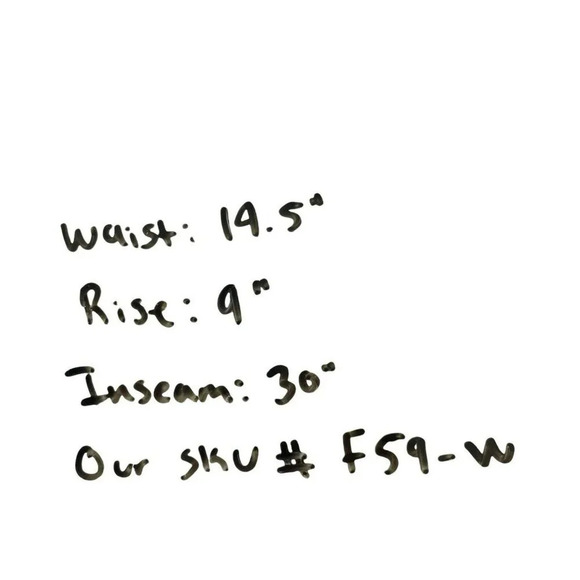 Waist: 14.5"
Rise: 9"
Inseam: 30"
Our SKU # F59-W